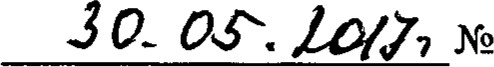 30.05.2017г №